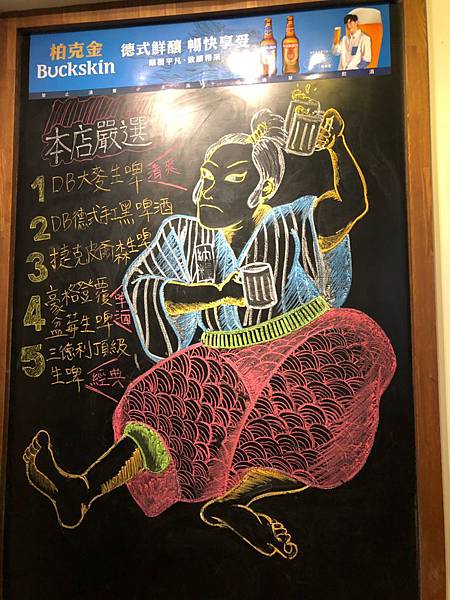 柏克金
Buckskin
德式鮮釀 暢快享受
顛覆平凡·致釀精采
本店嚴選
1 DB大麥生啤 清爽
2 DB德式手工黑啤酒
3 捷克皮爾森生啤
4 豪格登覆
盆莓生啤 啤酒
5 三德利頂級
生啤 經典